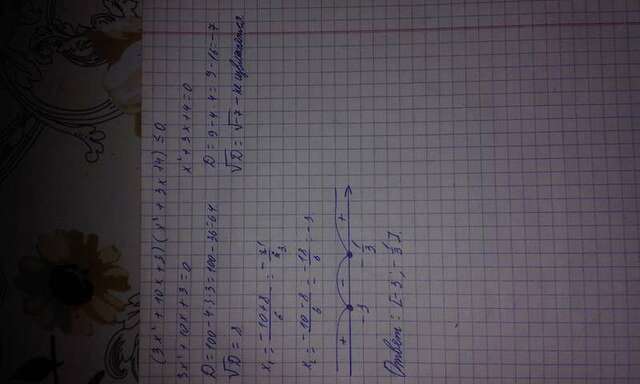 (3x² + 10x + 3)(x² + 3x + 4) ≤ 0
3x² + 10x + 3 = 0
D = 100 - 4·3·3 = 100 - 36 = 64
√D = 8
x₁ = (-10+8)/6 = -1/3
x₂ = (-10-8)/6 = -18/6 = -3
x² + 3x + 4 = 0
D = 9 - 4·4 = 9 - 16 = -7
√D = √-7 -
+ - +
-3 -1/3
Ответ: [-3; -1/3].